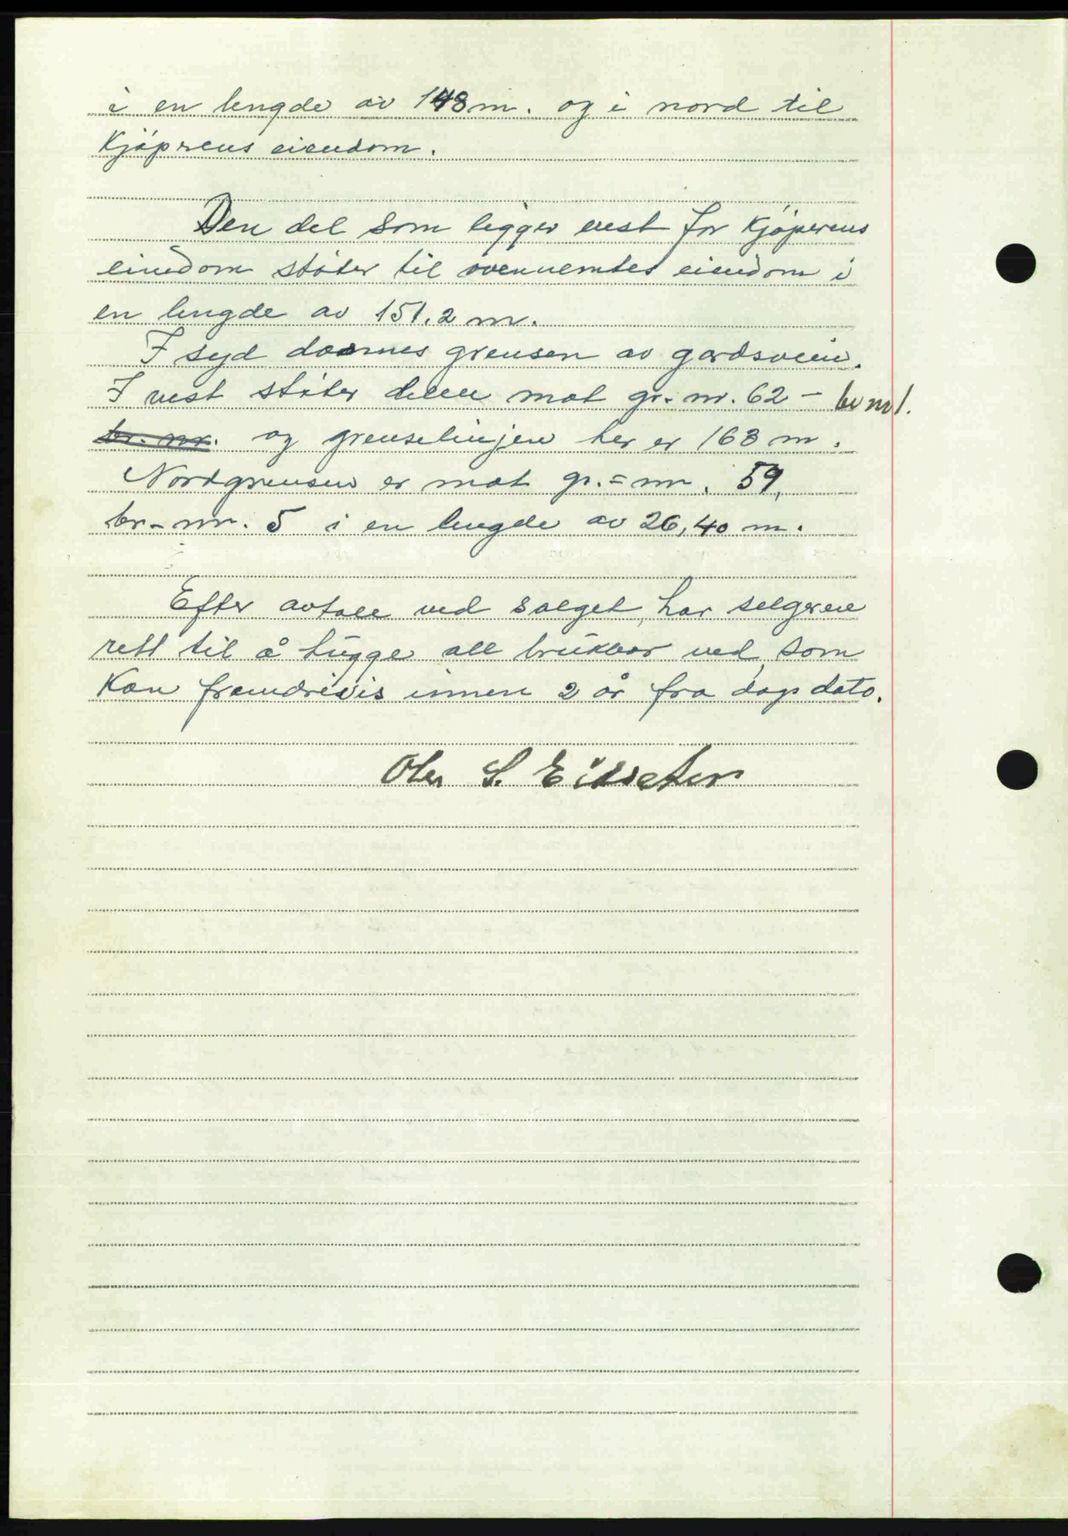 i en lengde av 148 m. og i nord til
Kjöprens eiendom.
Den del som ligger vest for Kjöperens
eiendom stöter til ovennemtes eiendom i
en lengde av 151.2 m.
I syd dannes grensen av gardsveien.
I vest stöter delen mot gr.-nr. 62 - br nr 1.
br. nr. og grenselinjen her er 168 m.
Nordgrensen er mot gr.=nr. 59,
br-nr. 5 i en lengde av 26,40 m.
Efter avtale ved salget, har selgeren
rett til å hugge all brukbar ved, som
kan fremdrivis innen 2 år fra dags dato.
S.